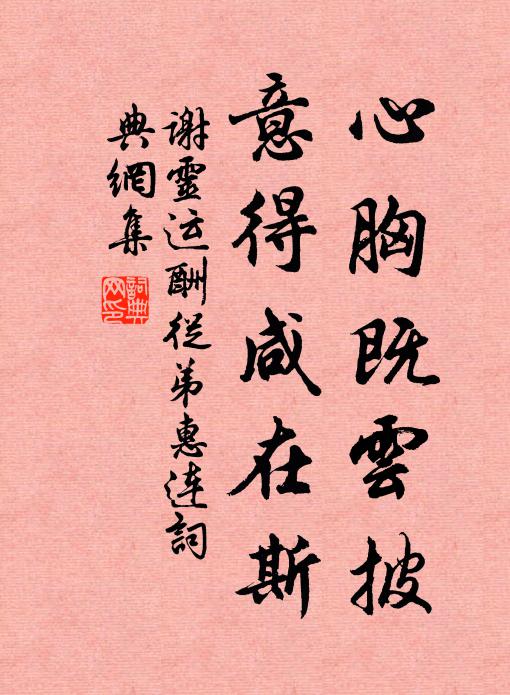 心胸既雲披
意得咸在斯
谢靈运酬從弟惠连詞
典網集
詞典网印